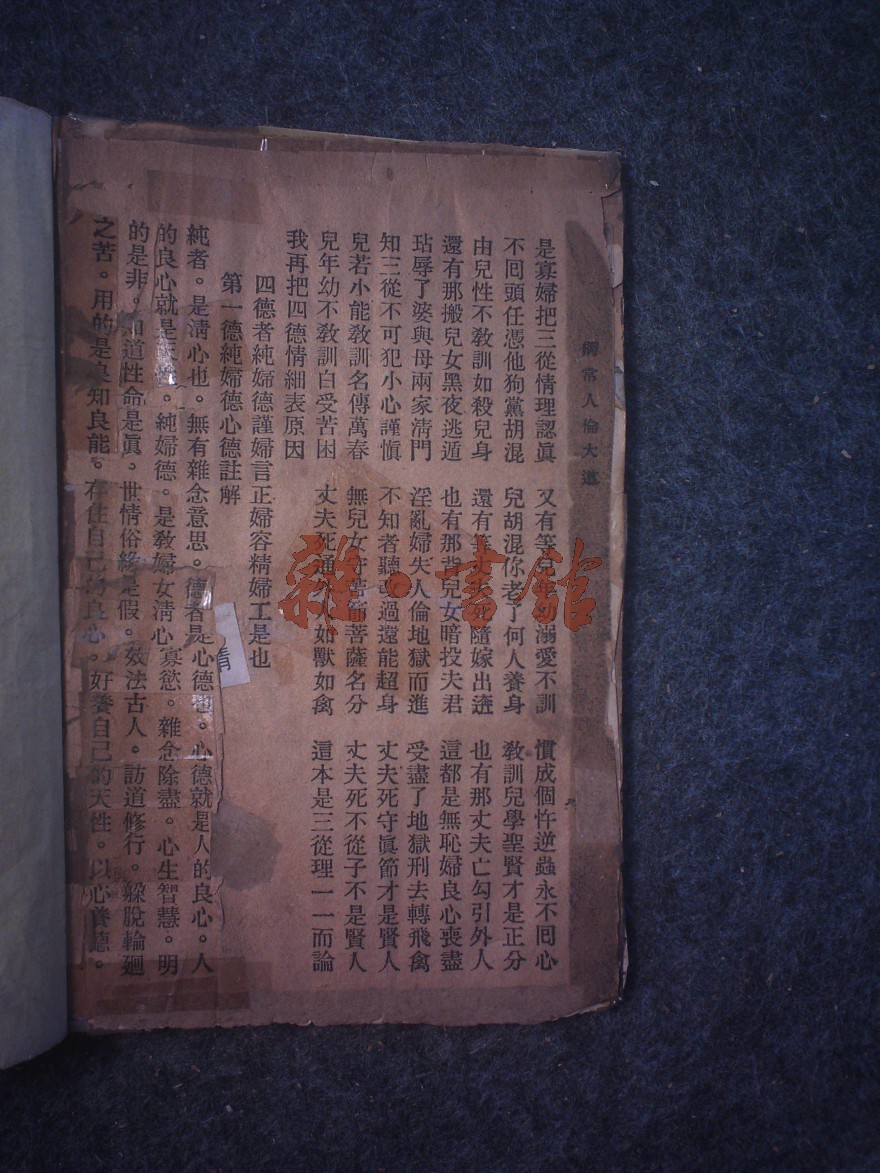 綱常人倫大道
是寡婦把三從情理認眞 又有等兒年幼溺愛不訓 慣成個忤逆蟲永不囘心
不囘頭任憑他狗黨胡混 兒胡混你老了何人養身 敎訓兒學聖賢才是正分
由兒性不敎訓如殺兒身 還有等丈夫死隨嫁出逰 也有那丈夫亡勾引外人
還有那搬兒女黑夜逃遁 也有那背兒女暗投夫君 這都是無恥婦良心喪盡
玷辱了婆與母兩家淸門 淫亂婦失人倫地獄而進 受盡了地獄刑去轉飛禽
知三從不可犯小心謹愼 不知者聽 過還能超身 丈夫死守眞節才是賢人
兒若小能敎訓名傳萬春 無兒女守苦節菩薩名分 丈夫死不從子不是賢人
兒年幼不敎訓白受苦困 丈夫死通 人如獸如禽 這本是三從理一一而論
我再把四德情細表原因
四德者純婦德謹婦言正婦容精婦工是也
第一德純婦德心德註解
純者。是淸心也。無有雜念意思。德者是心德也。心德就是人的良心。人
的良心就是天性。純婦德。是敎婦女淸心寡慾。雜念除盡。心生智慧。明
的是非。知道性命是眞。世情俗緣是假。效法古人。訪道修行。躱脫輪廻
之苦。用的是良知良能。存住自己的良心。好養自己的天性。以心養德。
情
雜·書館